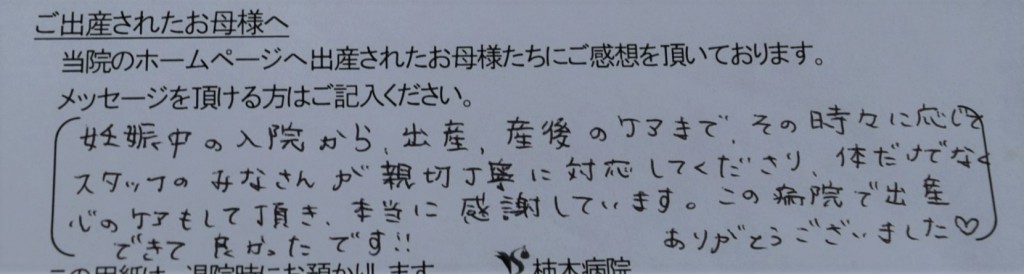 ご出産されたお母様へ
当院のホームページへ出産されたお母様たちにご感想を頂いております。
メッセージを頂ける方はご記入ください。
妊娠中の入院から、出産、産後のケアまで、その時々に応じて
スタッフのみなさんが親切丁寧に対応してくださり、体だけでなく
心のケアもして頂き、本当に感謝しています。この病院で出産
できて良かったです!! ありがとうございました♡
この用紙は、退院時にお預かりします 柿木病院